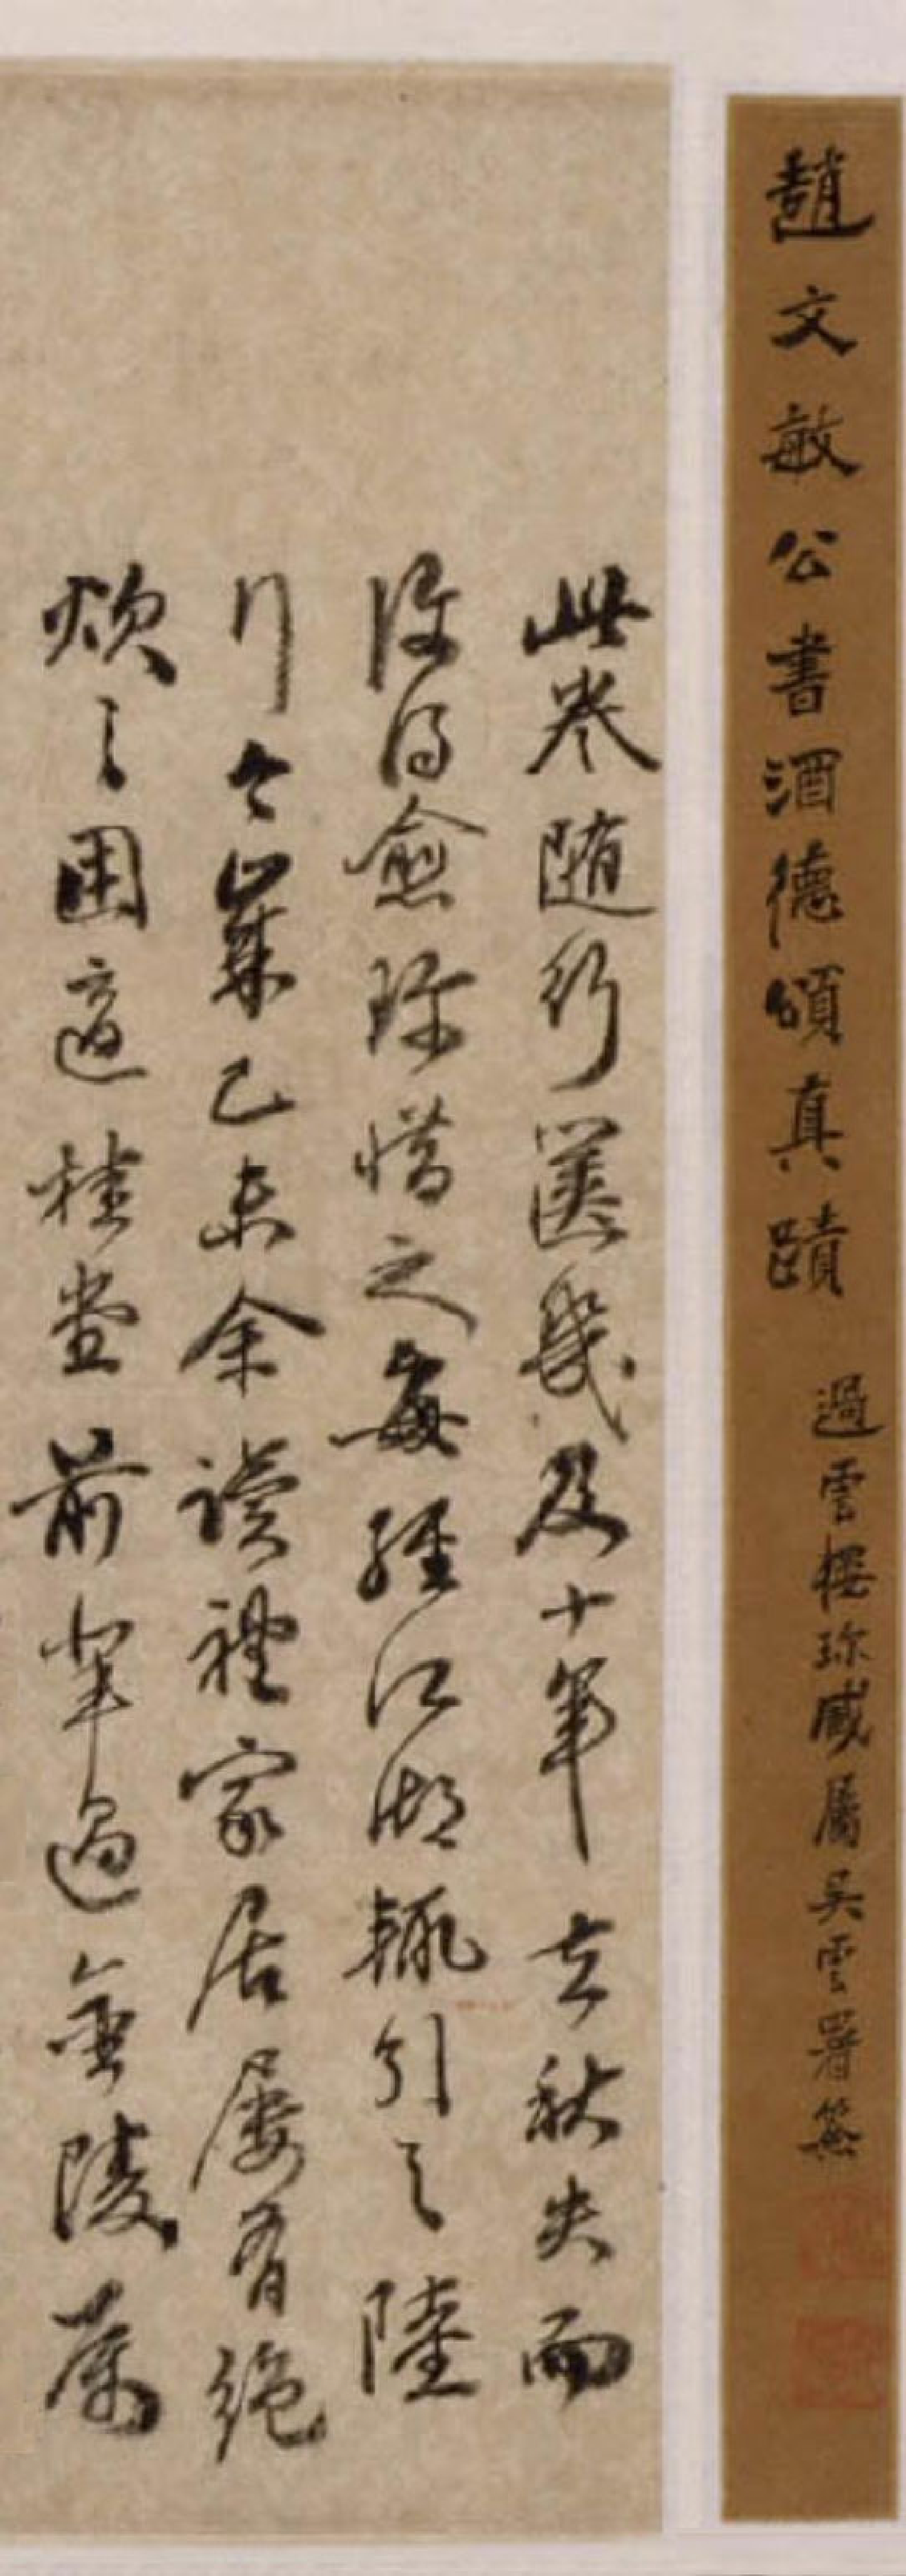 趙文敏公書酒德頌真蹟
過雲樓珎藏屬吳雲署簽
此卷随行篋幾及十年去秋失而
復得愈珎惜之每經江湖輒引之陸
行今歲己未余讀禮家居屢有絶
炊之困適桂堂前輩過金陵屬